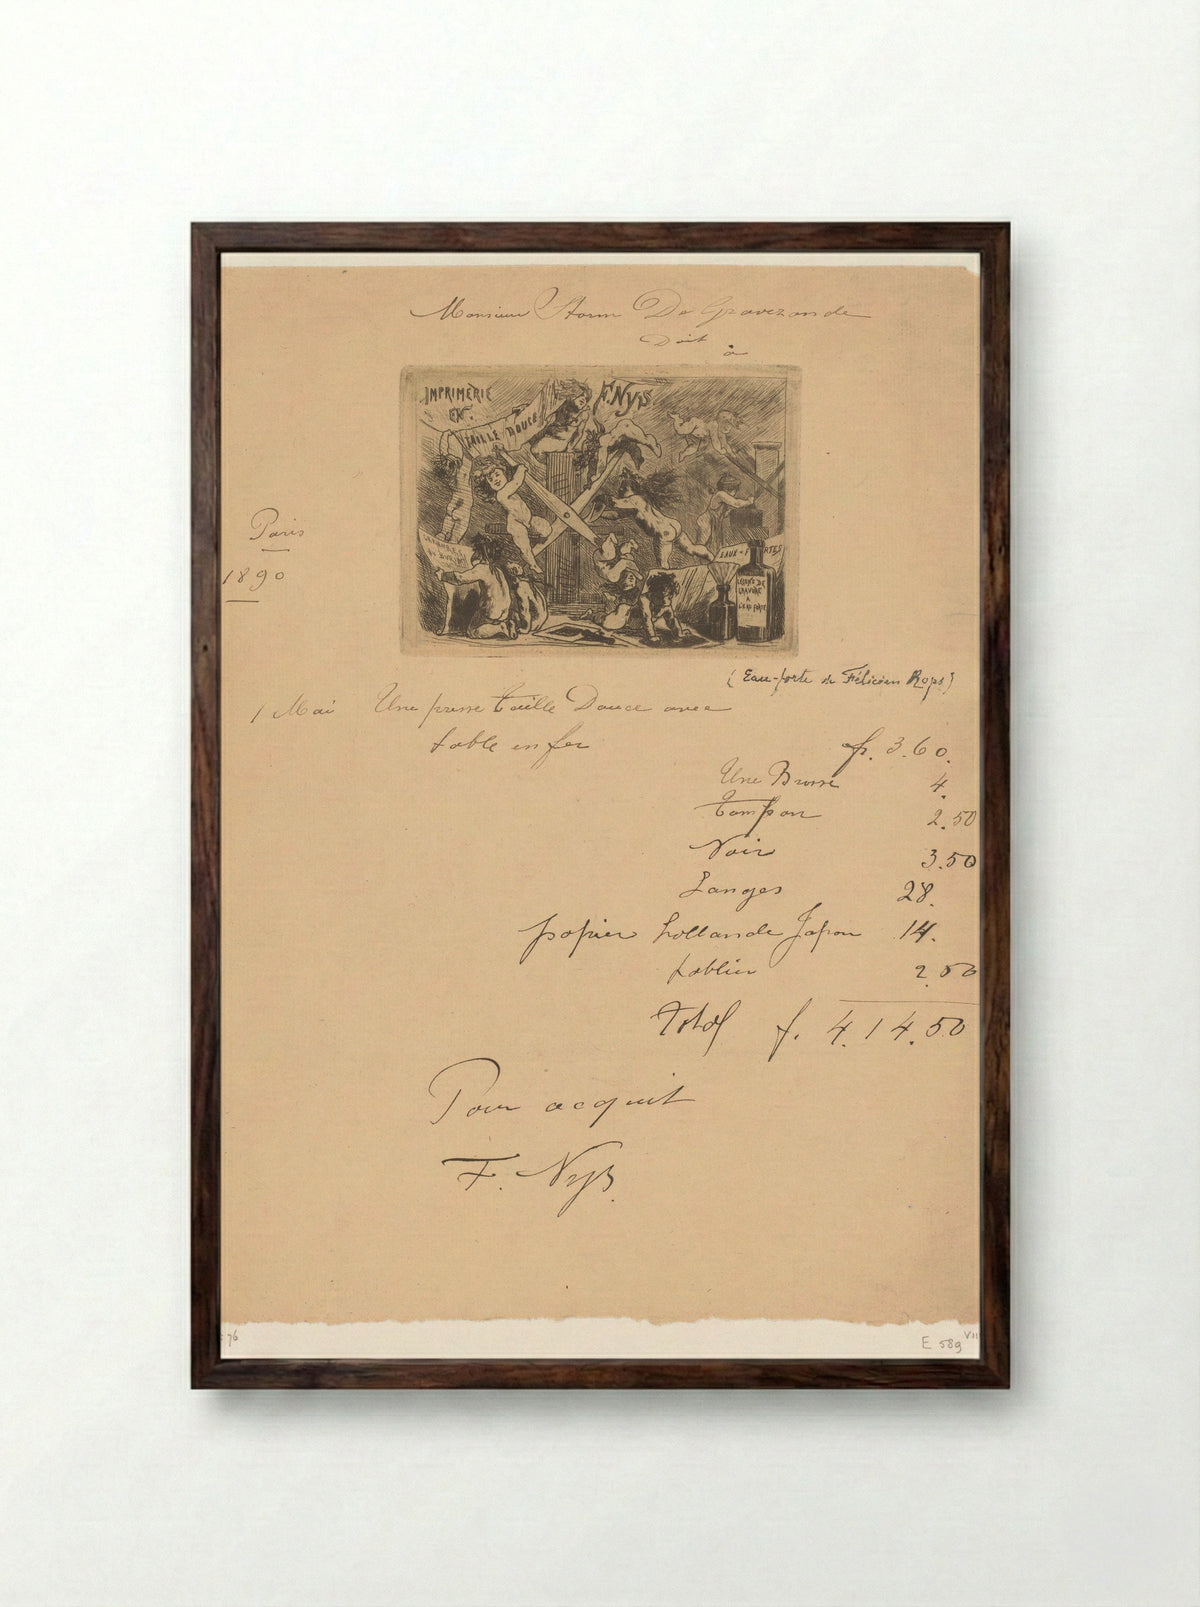 Monsieur Storm De Gravezande
Doit
à
IMPRIMERIE
EN
TAILLE DOUCE
F. NYS
Paris
1890
EAUX-FORTES
LEÇONS DE
GRAVURE
A
L'EAU FORTE
(Eau-forte de Félicien Rops)
1 Mai Une presse taille Douce avec
table en fer fr. 3.60.
Une Brosse 4.
Tampon 2.50
Noir 3.50
Langes 28.
papier hollande Japon 14.
tablier 2.50
Total f. 4.14.50
Pour acquit
F. Nys.
76
E 589 VII